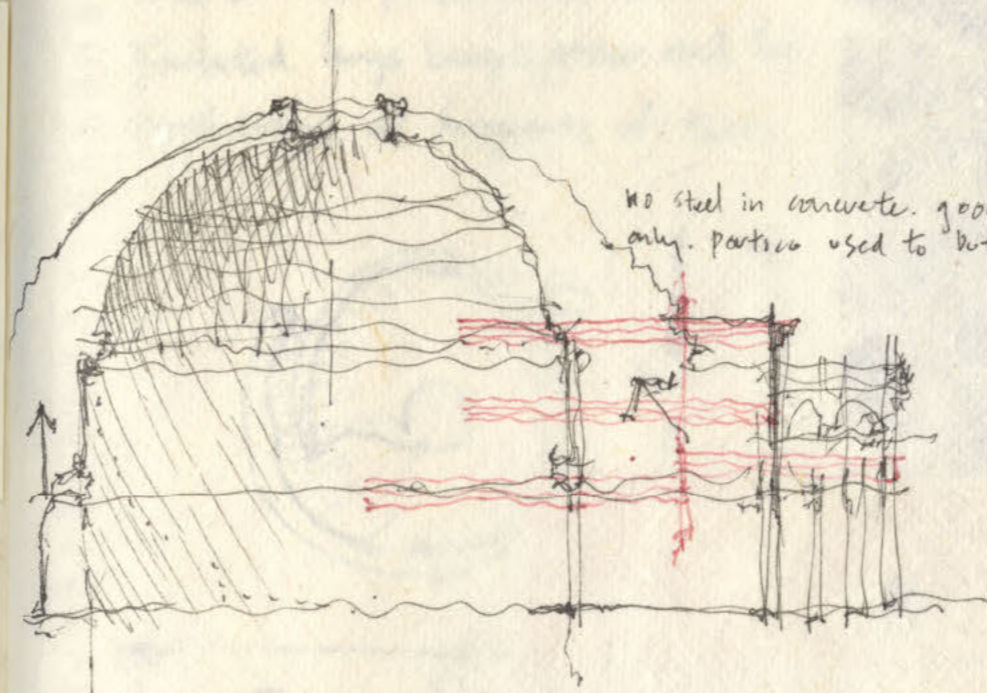 no steel in concrete. goo
only. portico used to but